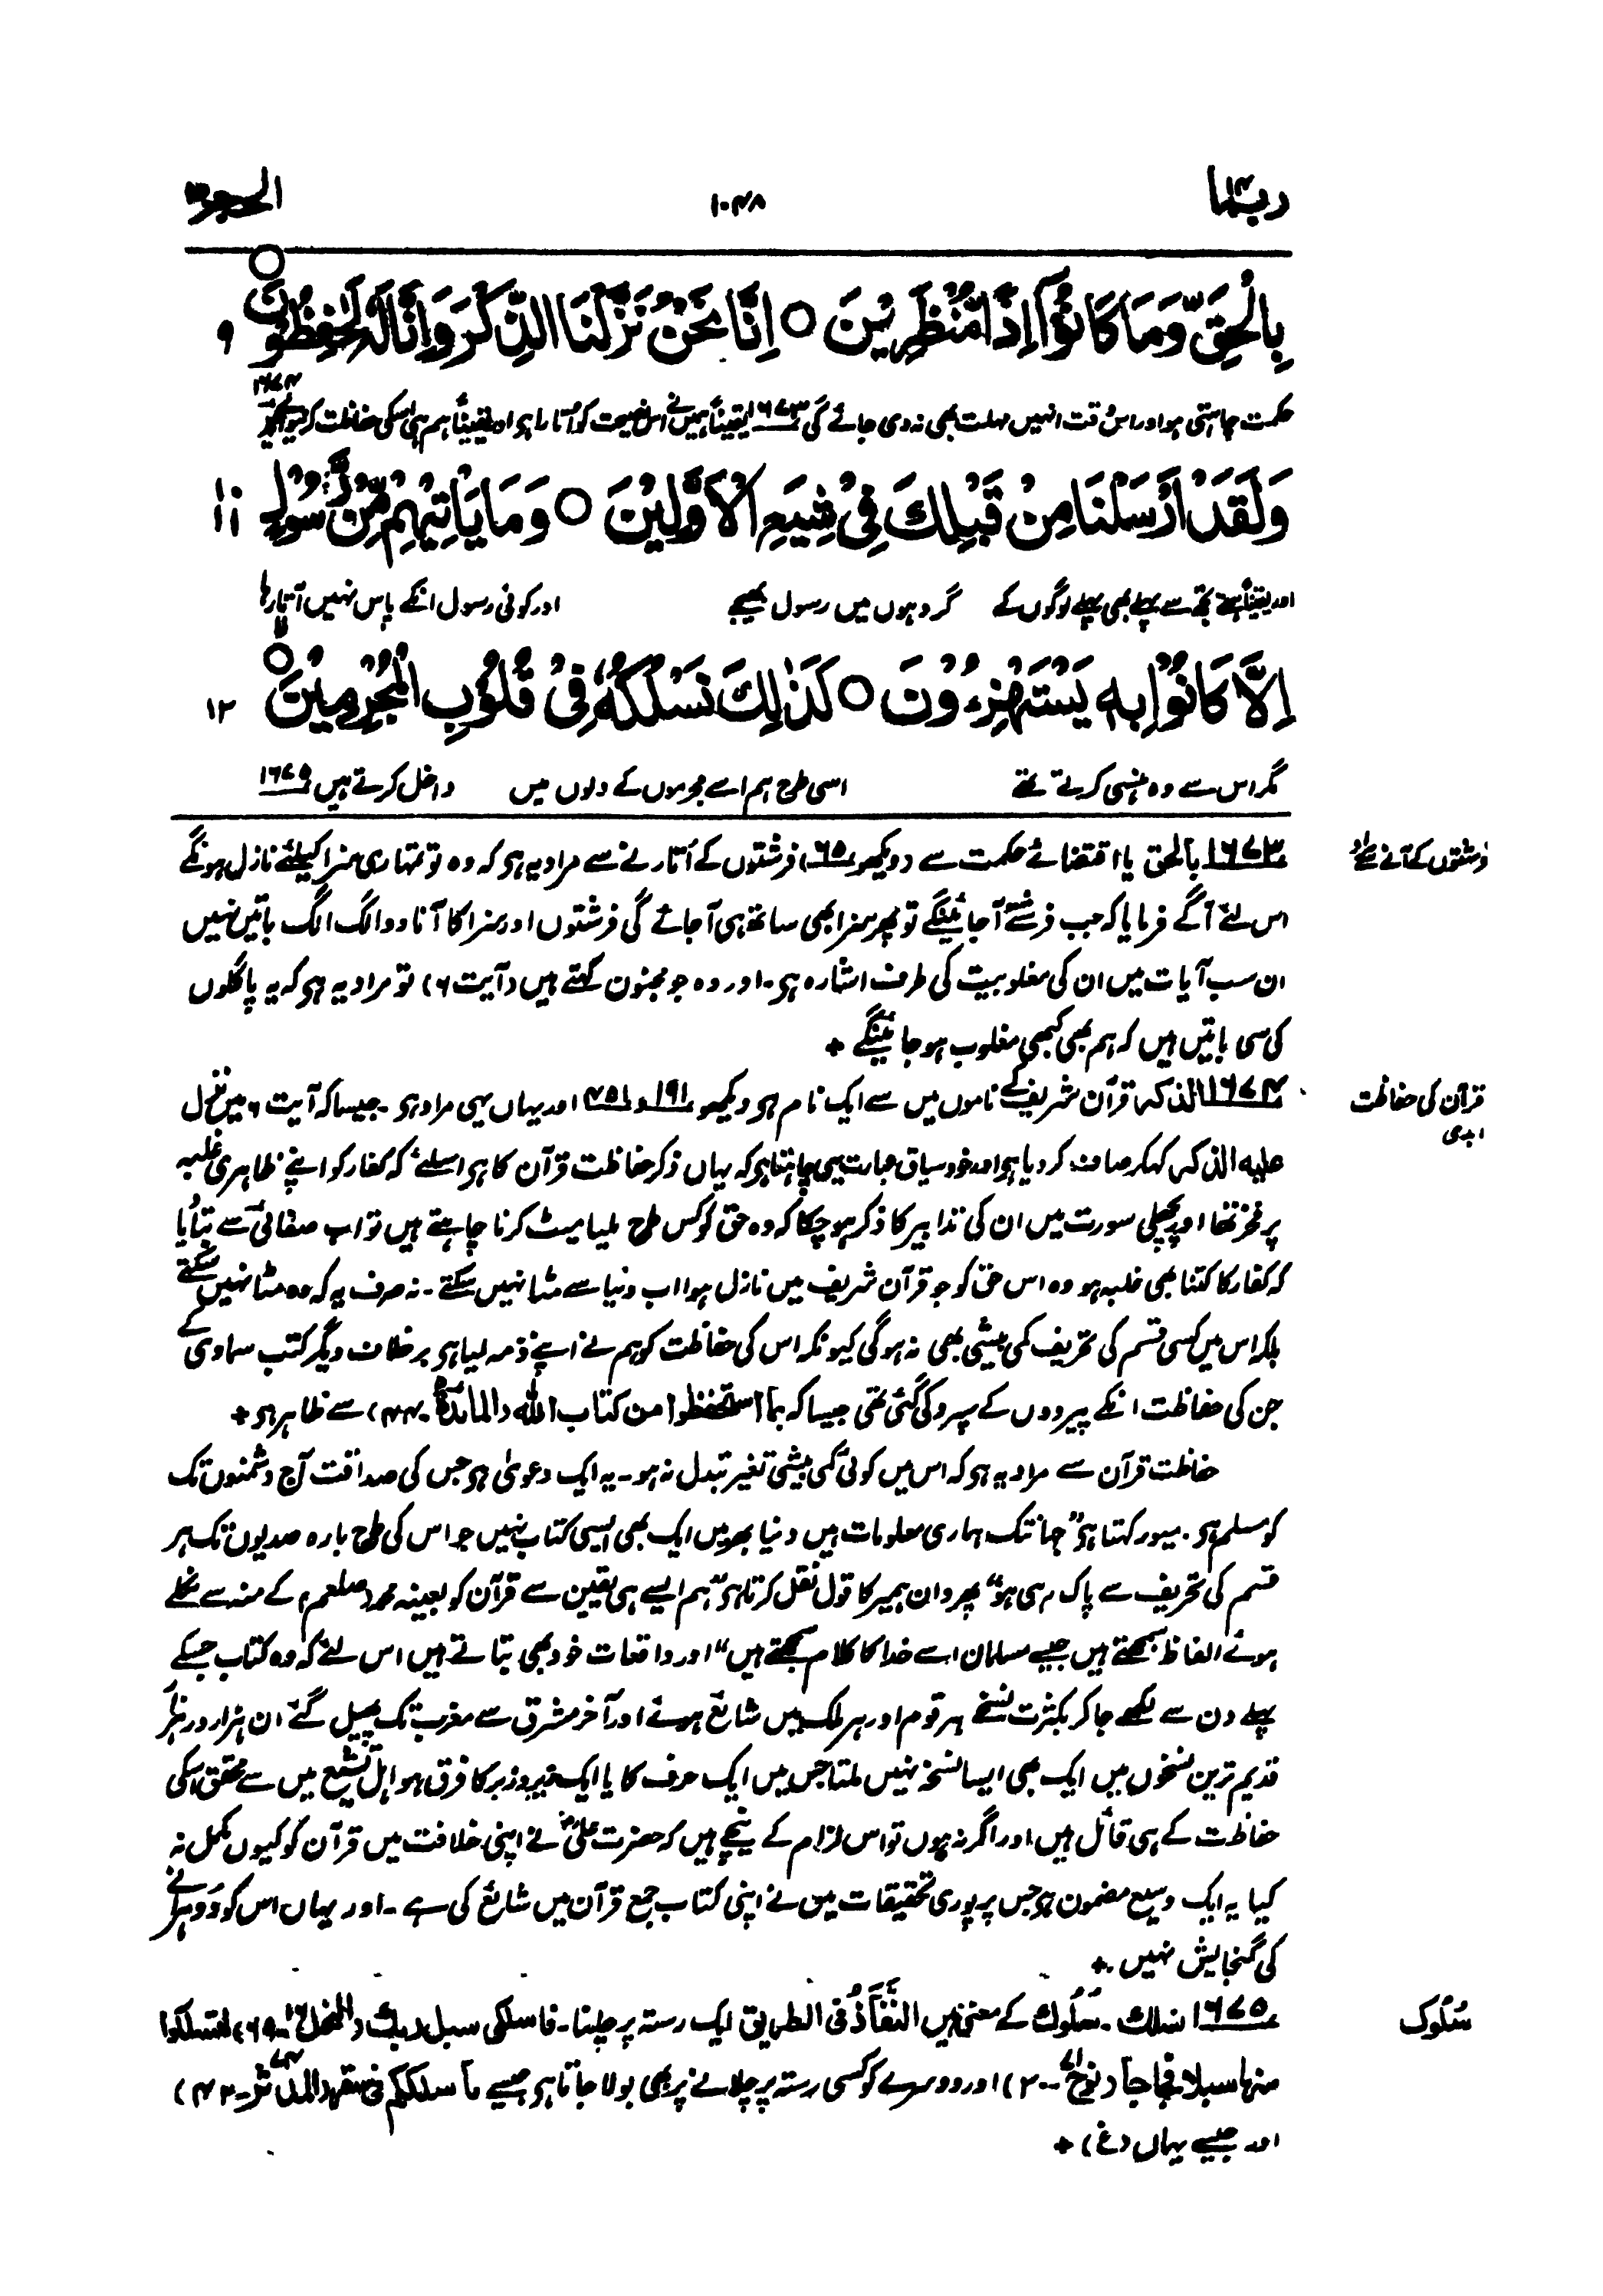 ربما ۱۴
۱۰۴۸
الحجر ۱۵
بِالْحَقِّ وَمَا كَانُوْٓا اِذًا مُّنْظَرِيْنَ ○ اِنَّا نَحْنُ نَزَّلْنَا الذِّكْرَ وَاِنَّا لَهٗ لَحٰفِظُوْنَ ○ ۹
حکمت چاہتی ہو اور اس وقت انہیں مہلت بھی نہ دی جائے گی ۱۶۷۳ یقیناً ہمیں نے اس نصیحت کو اُتارا ہو اور یقیناً ہم ہی اسکی حفاظت کرنیوالے ہیں ۱۶۷۴
وَلَقَدْ اَرْسَلْنَا مِنْ قَبْلِكَ فِيْ شِيَعِ الْاَوَّلِيْنَ ○ وَمَا يَاْتِيْهِمْ مِّنْ رَّسُوْلٍ ۱۰ ۱۱
اور یقیناً ہمنے تجھ سے پہلے بھی پہلے لوگوں کے گروہوں میں رسول بھیجے اور کوئی رسول انکے پاس نہیں آتا رہا
اِلَّا كَانُوْا بِهٖ يَسْتَهْزِءُوْنَ ○ كَذٰلِكَ نَسْلُكُهٗ فِيْ قُلُوْبِ الْمُجْرِمِيْنَ ○ ۱۲
مگر اس سے وہ ہنسی کرتے تھے اسی طرح ہم اسے مجرموں کے دلوں میں داخل کرتے ہیں ۱۶۷۵
فرشتوں کے آنے سے مراد
۱۶۷۳ بالحق یا اقتضائے حکمت سے (دیکھو ۶۵) فرشتوں کے اُتارنے سے مراد یہ ہو کہ وہ تو تمہاری سزا کیلئے نازل ہونگے
اس لئے آگے فرمایا کہ جب فرشتے آجائینگے تو پھر سزا بھی ساتھ ہی آجائے گی فرشتوں اور سزا کا آنا دو الگ الگ باتیں نہیں
ان سب آیات میں ان کی مغلوبیت کی طرف اشارہ ہو۔ اور وہ جو مجنون کہتے ہیں (آیت ۶) تو مراد یہ ہو کہ یہ پاگلوں
کی سی باتیں ہیں کہ ہم بھی کبھی مغلوب ہو جائینگے +
قرآن کی حفاظت ابدی
۱۶۷۴ الذکر قرآن شریف کے ناموں میں سے ایک نام ہو دیکھو ۱۹۱ و ۴۵۱ اور یہاں یہی مراد ہو۔ جیسا کہ آیت ۶ میں نزل
علیہ الذکر کہکر صاف کر دیا ہو اور خود سیاق عبارت یہی چاہتا ہو کہ یہاں ذکر حفاظت قرآن کا ہو اسلئے کہ کفار کو اپنے ظاہری غلبہ
پر فخر تھا اور پچھلی سورت میں ان کی تدابیر کا ذکر ہو چکا کہ وہ حق کو کس طرح ملیامیٹ کرنا چاہتے ہیں تو اب صفائی سے بتایا
کہ کفار کا کتنا بھی غلبہ ہو وہ اس حق کو جو قرآن شریف میں نازل ہوا اب دنیا سے مٹا نہیں سکتے۔ نہ صرف یہ کہ وہ مٹا نہیں سکتے
بلکہ اس میں کسی قسم کی تحریف کمی بیشی بھی نہ ہوگی کیونکہ اس کی حفاظت کو ہم نے اپنے ذمہ لیا ہو برخلاف دیگر کتب سماوی کے
جن کی حفاظت انکے پیرووں کے سپرد کی گئی تھی جیسا کہ بما استحفظوا من کتاب اللہ (المائدۃ۔ ۴۴) سے ظاہر ہو +
حفاظت قرآن سے مراد یہ ہو کہ اس میں کوئی کمی بیشی تغیر تبدل نہ ہو۔ یہ ایک دعویٰ ہو جس کی صداقت آج دشمنوں تک
کو مسلم ہو۔ میور کہتا ہو "جہانتک ہماری معلومات ہیں دنیا بھر میں ایک بھی ایسی کتاب نہیں جو اس کی طرح بارہ صدیوں تک ہر
قسم کی تحریف سے پاک رہی ہو" پھر وان ہیمر کا قول نقل کرتا ہو "ہم ایسے ہی یقین سے قرآن کو بعینہ محمد (صلعم) کے منہ سے نکلے
ہوئے الفاظ سمجھتے ہیں جیسے مسلمان اسے خدا کا کلام سمجھتے ہیں" اور واقعات خود بھی بتاتے ہیں اس لئے کہ وہ کتاب جسکے
پہلے دن سے لکھے جا کر بکثرت نسخے ہر قوم اور ہر ملک میں شائع ہوئے اور آخر مشرق سے مغرب تک پھیل گئے ان ہزار در ہزار
قدیم ترین نسخوں میں ایک بھی ایسا نسخہ نہیں ملتا جس میں ایک حرف کا یا ایک زیر و زبر کا فرق ہو اہل تشیع میں سے محقق اسکی
حفاظت کے ہی قائل ہیں اور اگر نہ ہوں تو اس الزام کے نیچے ہیں کہ حضرت علیؓ نے اپنی خلافت میں قرآن کو کیوں مکمل نہ
کیا یہ ایک وسیع مضمون ہو جس پر پوری تحقیقات میں نے اپنی کتاب جمع قرآن میں شائع کی ہے۔ اور یہاں اس کو دوہرانے
کی گنجایش نہیں +
سُلُوک
۱۶۷۵ نسلک۔ سُلُوك کے معنی ہیں النَّفَاذُ فی الطریق ایک رستہ پر چلنا۔ فاسلکی سبل ربک (النحل ۱۶۔ ۶۹) لتسلکوا
منها سبلا فجاجا (نوح ۷۱۔ ۲۰) اور دوسرے کو کسی رستہ پر چلانے پر بھی بولا جاتا ہو جیسے ما سلککم فی سقر (المدثر ۷۴۔ ۴۲)
اور جیسے یہاں (غ) +